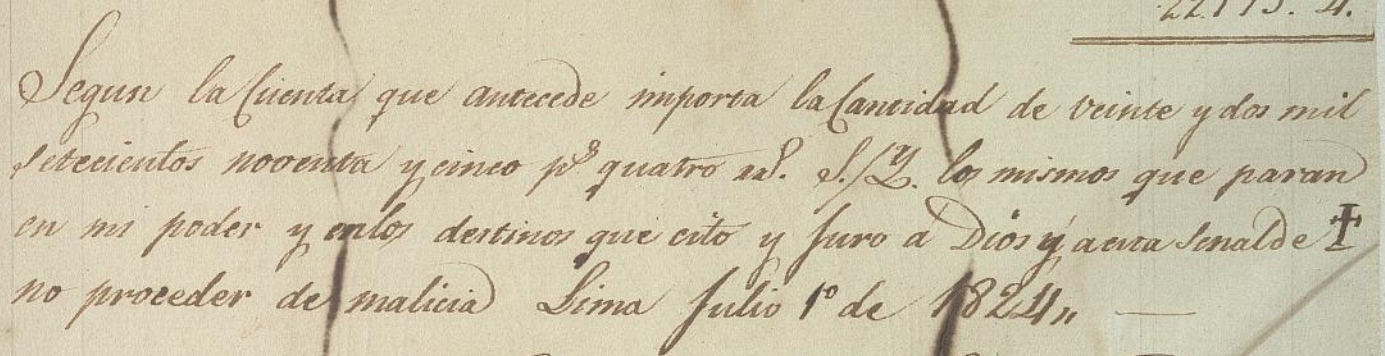 22.795. 4.
Segun la Cuenta que antecede importa la Cantidad de veinte y dos mil
setecientos noventa y cinco p.s quatro rr.s S./Y. los mismos que paran
en mi poder y enlos destinos que cito y Juro á Dios y á esta Senal de †
no proceder de malicia Lima Julio 1º de 1824,,